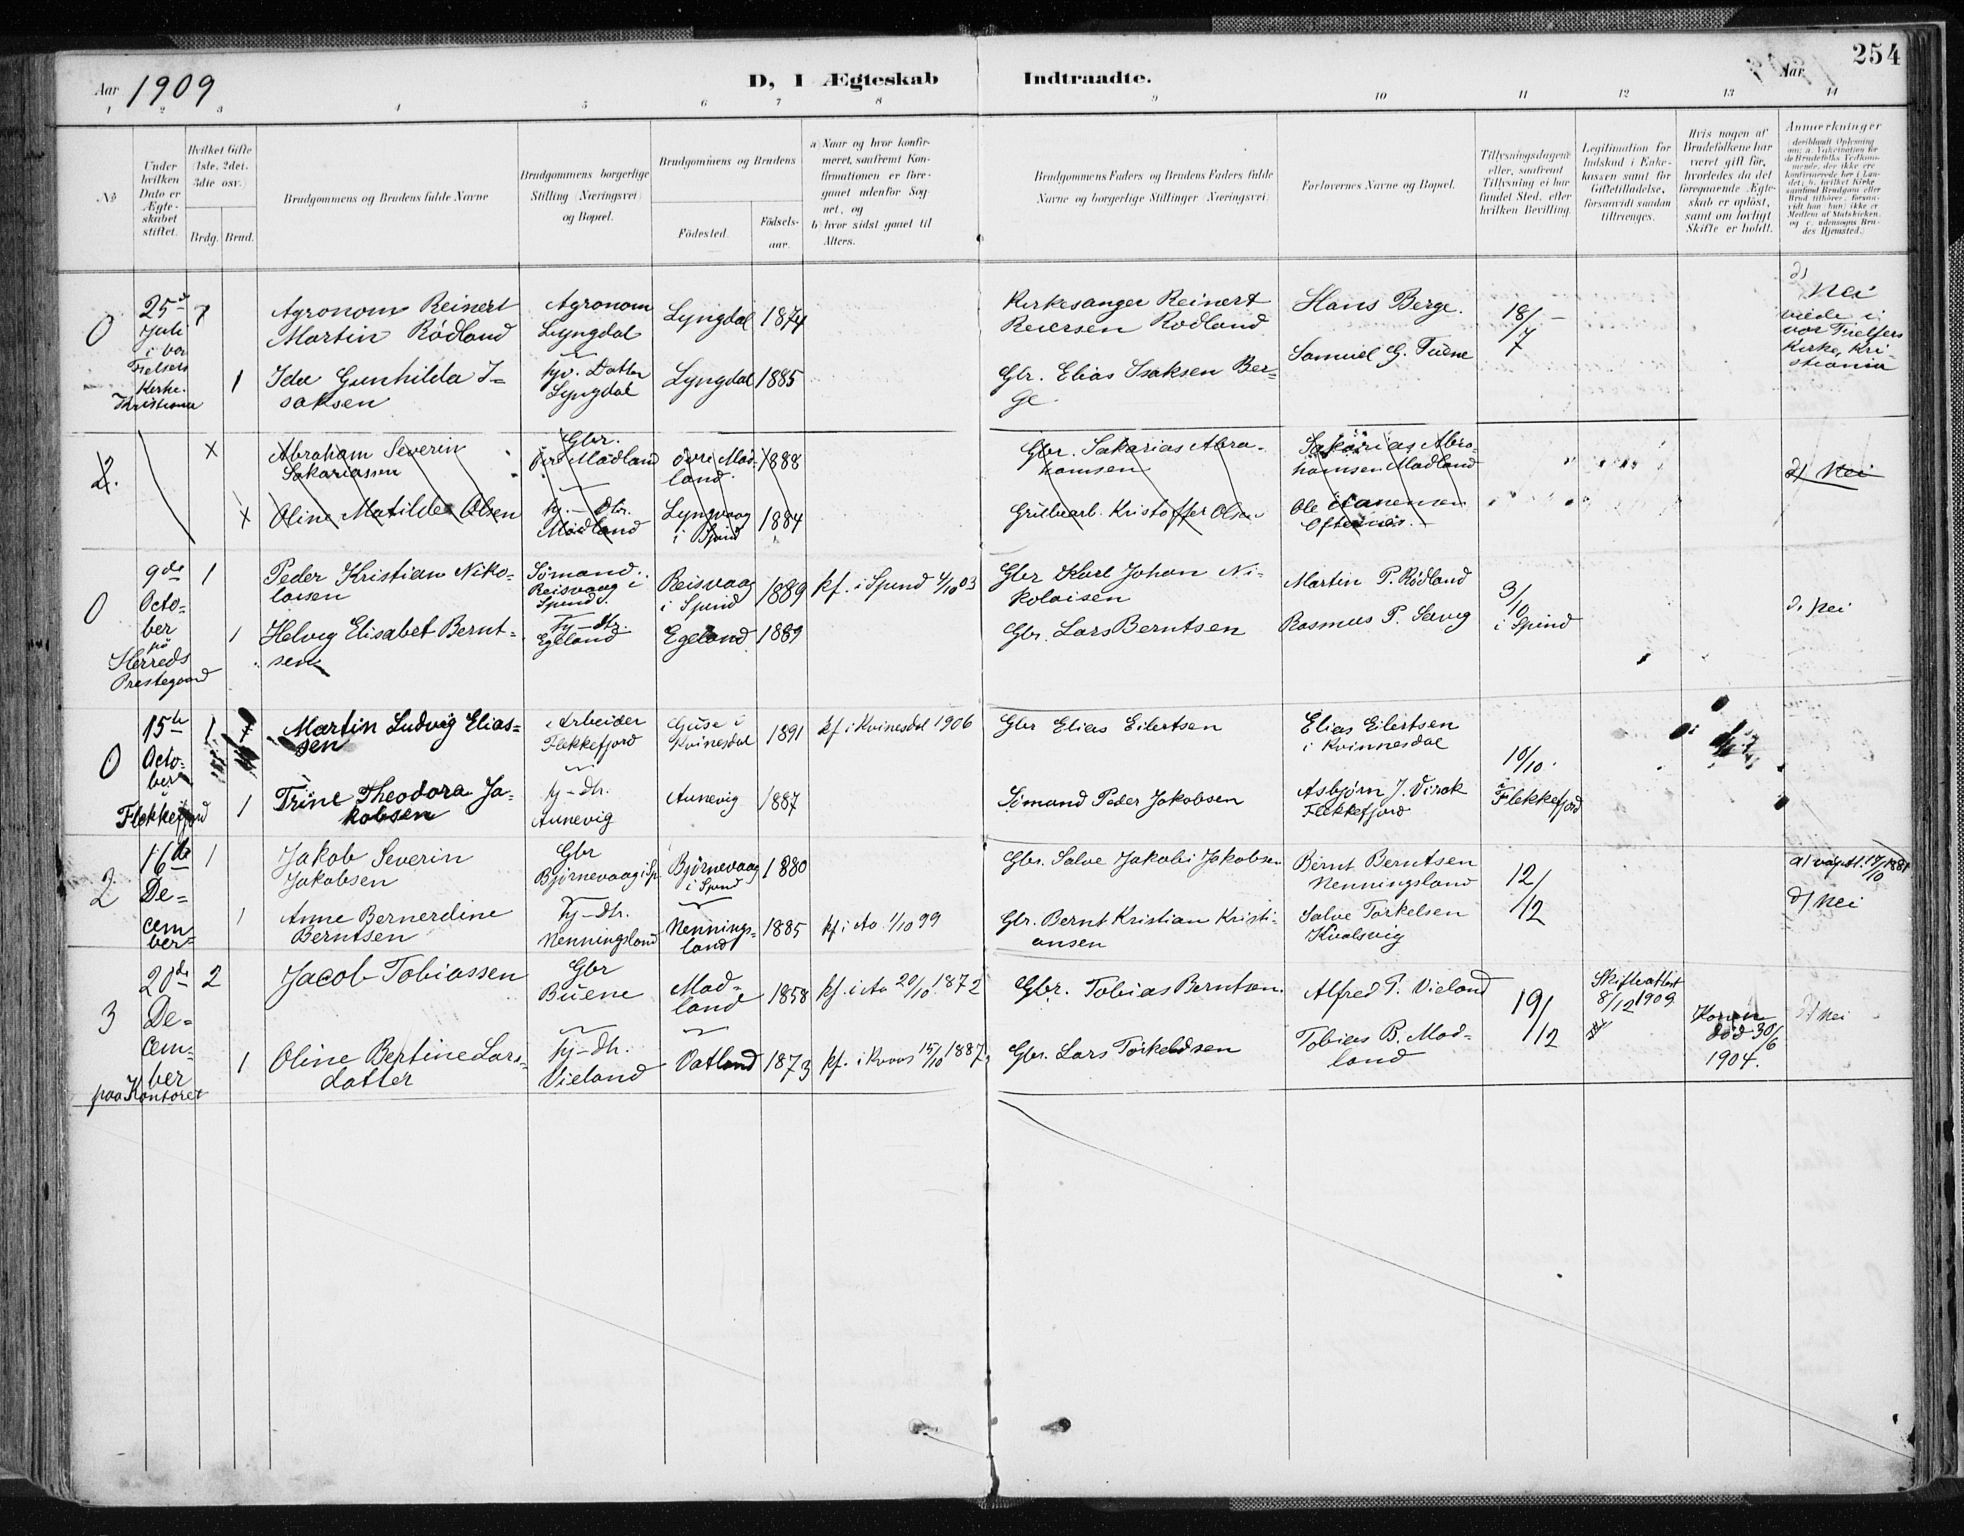 254
Aar 1909
D, I Ægteskab Indtraadte.
Aar
1 2 3 4 5 6 7 8 9 10 11 12 13 14
No
Under hvilken Dato er Ægteskabet stiftet.
Hvilket Gifte (1ste, 2det, 3die osv.)
Brdg. Brud.
Brudgommens og Brudens fulde Navne
Brudgommens borgerlige Stilling (Næringsvei) og Bopæl.
Brudgommens og Brudens
Fødested.
Fødselsaar.
a) Naar og hvor konfirmeret, saafremt Konfirmationen er foregaaet udenfor Sognet, og
b) hvor sidst gaaet til Alters.
Brudgommens Faders og Brudens Faders fulde Navne og borgerlige Stillinger (Næringsvei)
Forlovernes Navne og Bopæl.
Tillysningsdagene eller, saafremt Tillysning ei har fundet Sted, efter hvilken Bevilling.
Legitimation for Indskud i Enkekassen samt for Giftetilladelse, forsaavidt saadan tiltrænges.
Hvis nogen af Brudefolkene har været gift før, hvorledes da det foregaaende Ægteskab er opløst, samt om lovligt Skifte er holdt.
Anmærkninger
0
25de Juli i Vor Frelsers Kirke. Kristiania
1
Agronom Reinert
Martin Rødland
Agronom
Lyngdal
Lyngdal
1874
Kirkesanger Reinert
Reiersen Rødland
Hans Berge.
18/7
d) Nei
viede i
vor Frelsers
Kirke, Kri-
stiania
1
Ida Gunhilda I-
saksen
hjv. Datter
Lyngdal
Lyngdal
1885
Gbr. Elias Isaksen Ber-
ge
Samuel G. Tuene
2.
x
Abraham Severin
Sakariassen
Gbr.
Øvre Mødland
Øvre Mød-
land.
1888
Gbr. Sakarias Abra-
hamsen
Sakarias Abra-
hamsen Mødland
d) Nei
x
Oline Matilde Olsen
Tj. - Dtr.
Mødland
Lyngvaag
i Spind
1884
Kristoffer Olsen
Ole Hanensen
0
9de Octo-
ber
på
Herreds
Prestegaard
1
Peder Kristian Niko-
laisen
Sømand.
Reisvaag i
Spind.
Reisvaag
i Spind
1889
kf. i Spind 4/10 03
Gbr Karl Johan Ni-
kolaisen
Martin P. Rødland
3/10
i Spind
d. Nei
1
Helvig Elisabet Bernt-
sen
Tj-dtr.
Egeland
Egeland
1889
Gbr. Lars Berntsen
Rasmus P. Savig
0
15de
Octo-
ber
i
Flekkefjord
1
Martin Ludvig Elias-
sen
Arbeider
Flekkefjord
Guse i
Kvinesdal
1891
kf i Kvinesdal 1906
Gbr Elias Eilertsen
Elias Eilertsen
i Kvinnesdal
10/10.
i
Flekkefjord
1
Trine Theodora Ja-
kobsen
tj-dtr.
Aunevig
Aunevig
1887
Sømand Peder Jakobsen
Asbjørn J. Virak
Flekkefjord
2
16de
De-
cem
ber-
1
Jakob Severin
Jakobsen
Gbr
Bjørnevaag i Sp.
Bjørnevaag
i Spind
1880
Gbr. Salve Jakobi Jakobsen
Bernt Berntsen
Nenningsland
12/12
d) Nei
1
Anne Bernerdine
Berntsen
Tj-dtr.
Nenningsland
Nennings-
land
1885
kf i Aa 1/10 99
Gbr. Bernt Kristian Kristi-
ansen
Salve Torkelsen
Kvalsvig
3
20de
De-
cem-
ber
paa Kontoret
2
Jacob Tobiassen
Gbr
Buene
Mad-
land
1858
kf. i Aa 20/10 1872
Gbr. Tobias Berntsen.
Alfred T. Vieland
19/12
Skifteattest
8/12 1909
Konen
død 30/6
1904.
d) Nei
1
Oline Bertine Lars-
datter
Tj-dtr.
Vieland
Oatland
1873
kf. i Kvaas 15/10 1887
Gbr. Lars Torkeldsen
Tobias B. Mad-
land